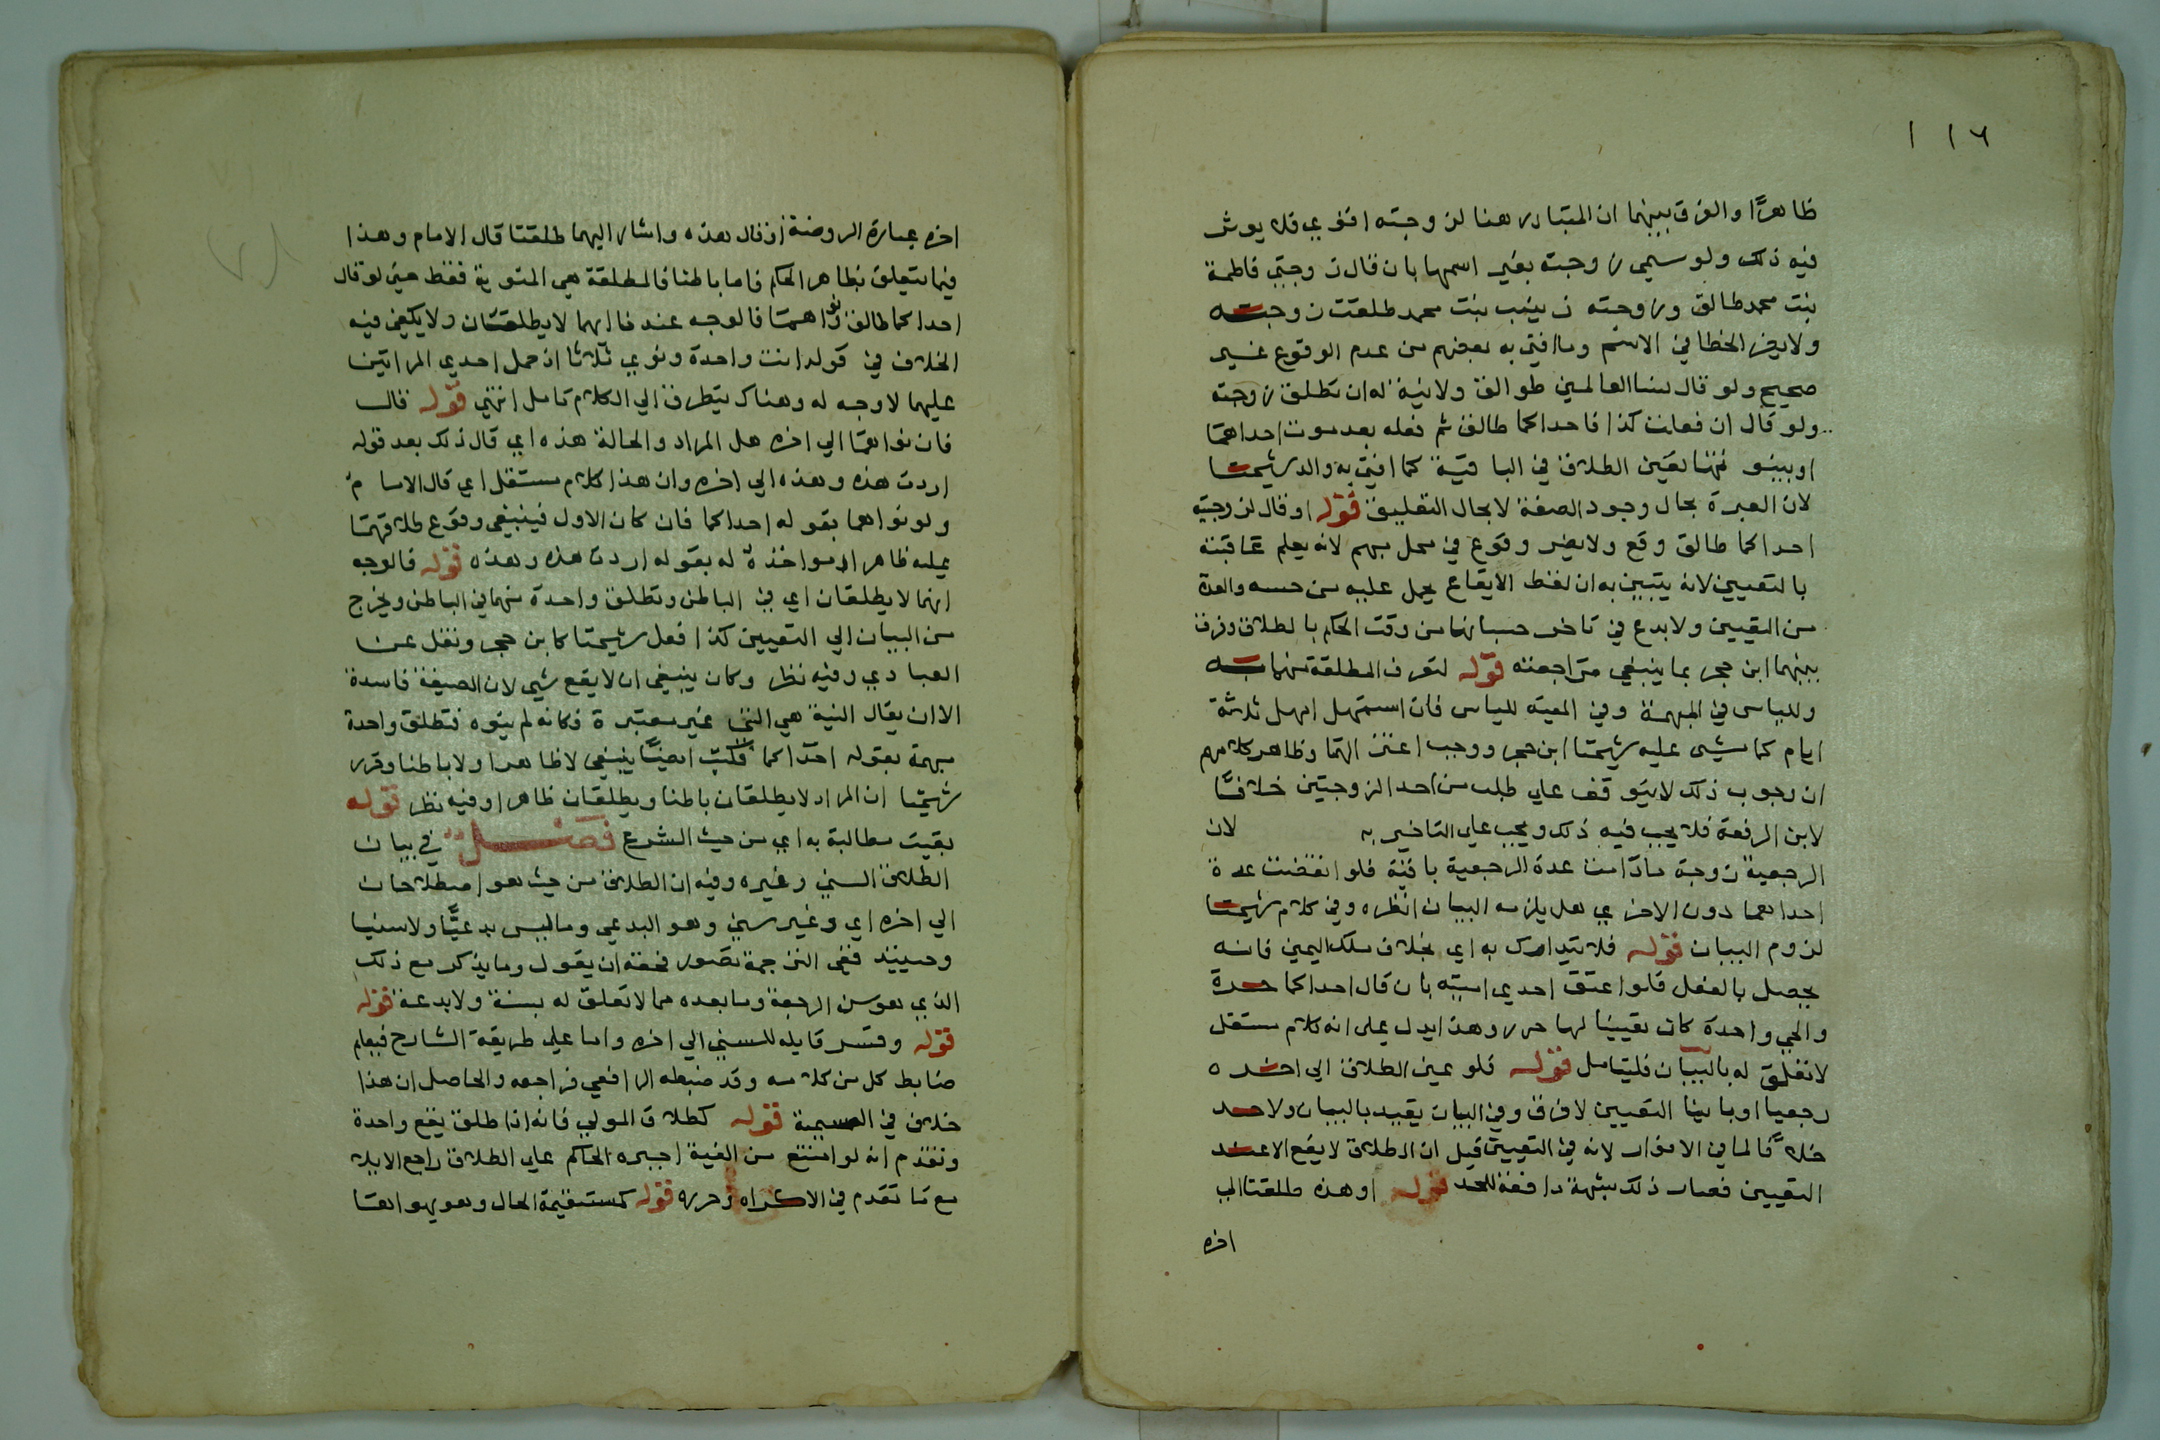 ١١٦
ظاهرًا والفرق بينهما ان المتبادر هنا لزوجته اقوي فلا يوثر
فيه ذلك ولو سمي زوجته بغير اسمها بان قال زوجتي فاطمة
بنت محمد طالق وزوجته زينب بنت محمد طلقت زوجته
ولا يضر الخطا في الاسم وما افتي به بعضهم من عدم الوقوع غير
صحيح ولو قال نسا العالمين طوالق ولا نية له ان تطلق زوجته
ولو قال ان فعلت كذا فاحداكما طالق ثم فعله بعد موت احداهما
او بينونتها تعين الطلاق في الباقية كما افتي به والد شيخنا
لان العبرة بحال وجود الصفة لا بحال التعليق قوله او قال لزوجتيه
احداكما طالق وقع ولا يضر وقوع في محل مبهم لانه يعلم عاقبته
بالتعيين لانه يتبين به ان لفظ الايقاع يحل عليه من حسه والعدة
من التعيين ولا بدع في تاخر حسبانها من وقت الحكم بالطلاق وفرق
بينهما ابن حجر بما ينبغي مراجعته قوله لتعرف المطلقة منهما
ولليا س في المبهمة وفي المعينه للياس فان استمهل امهل ثلاثة
ايام كما مشي عليه شيخنا ابن حجر ووجب اعتزالهما وظاهر كلامهم
ان وجوب ذلك لا يتوقف علي طلب من احد الزوجتين خلافًا
لابن الرفعة فلا يجب فيه ذلك ويجب علي التاخير به لان
الرجعية زوجة ما دامت عدة الرجعية باقية فلو انقضت عدة
احداهما دون الاخري هل يلزمه البيان انظره وفي كلام شيخنا
لزوم البيان قوله فلا يتدارك به اي بخلاف ملك اليمين فانه
يحصل بالفعل فلو اعتق احدي امتيه بان قال احداكما حرة
والجي واحدة كان تعيينا لها حرر وهذا يدل علي انه كلام مستقل
لا تعلق له بالبيان فليتامل قوله فلو عين الطلاق الي اخره
رجعيا او باينا التعيين لا فرق وفي البيان يقيد بالبيان ولا حد
خلافًا لما في الانوار لانه في التعيين قيل ان الطلاق لا يقع الا عند
التعيين فصار ذلك شبهة دافعة للحد قوله او هذه طلقتا الي
اخره
اخره عبارة الروضة اذ قال هذه واشار اليهما طلقتا قال الامام وهذا
فيما يتعلق بظاهر الحكم فاما باطنا فالمطلقة هي المنوية فقط حتي لو قال
احداكما طالق ونواهما فالوجه عندنا انهما لا يطلقتان ولا يكفي فيه
الخلاف في قوله انت واحدة ونوي ثلاثا اذ حمل احدي المراتين
عليهما لا وجه له وهناك يتطرق الي الكلام تامل انتهي قوله قال
فان نواهما الي اخره هل المراد والحالة هذه اي قال ذلك بعد قوله
اردت هذه وهذه الي اخره وان هذا كلام مستقل اي قال الامام
ولو نواهما بقوله احداكما فان كان الاول فينبغي وقوع طلاقهما
عليه ظاهرا مواخذة له بقوله اردت هذه وهذه قوله فالوجه
انهما لا يطلقان اي في الباطن وتطلق واحدة منهما في الباطن ويخرج
من البيان الي التعيين كذا فعل شيخنا كابن حجر ونقل عن
العبادي وفيه نظر وكان ينبغي ان لا يقع شي لان الصيغة فاسدة
الا ان يقال النية هي التي غير معتبرة فكانه لم ينوه فتطلق واحدة
مبهمة بقوله احداكما قلت ايضًا ينبغي لا ظاهرا ولا باطنا وقرر
شيخنا ان المراد لا يطلقان باطنا ويطلقان ظاهرا وفيه نظر قوله
بقيت مطالبة به اي من حيث الشرع فصل في بيان
الطلاق السني وغيره وفيه ان الطلاق من حيث هو اصطلاحان
الي اخره اي وغير سني وهو البدعي وما ليس بدعيًا ولا سنيا
وحينيذ ففي الترجمة تصور فحقه ان يقول وما يذكر مع ذلك
الذي هو من الرجعة وما بعده مما لا تعلق له بسنة ولا بدعة قوله
قوله وقسر قايله للسني الي اخره واما علي طريقة الشارح فيعلم
ضابط كل من كلامه وقد ضبطه الرافعي فراجعه والحاصل ان هذا
خلاف في التسمية قوله كطلاق المولي فانه اذا طلق يقع واحدة
وتقدم انه لو امتنع من الفية اجبره الحاكم علي الطلاق راجع الايلا
مع ما تقدم في الاكراه وحرره قوله كمستقيمة الحال وهو يهواها